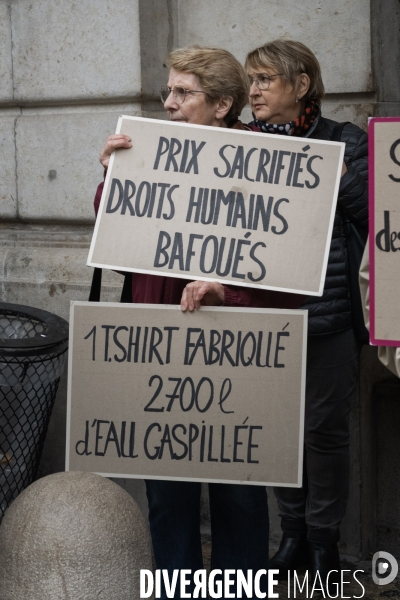 PRIX SACRIFIÉS
DROITS HUMAINS
BAFOUÉS
1 T.SHIRT FABRIQUÉ
2700 l
d'EAU GASPILLÉE
des
DIVERGENCE IMAGES